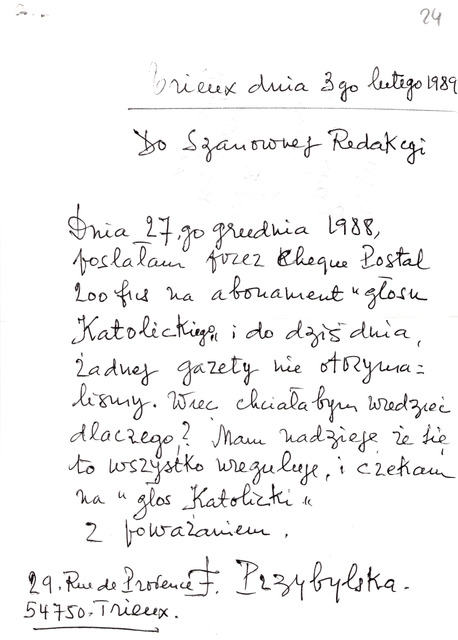 24
Trieux dnia 3go lutego 1989
Do Szanownej Redakcji
Dnia 27.go grudnia 1988,
posłałam przez Cheque Postal
200 frs na abonament "głosu
Katolickiego" i do dziś dnia,
żadnej gazety nie otrzyma=
liśmy. Więc chciałabym wiedzieć
dlaczego? Mam nadzieje że się
to wszystko wreguluje, i czekam
na "głos Katolicki"
Z poważaniem.
29. Rue de Provence F. Przybylska.
54750. Trieux.